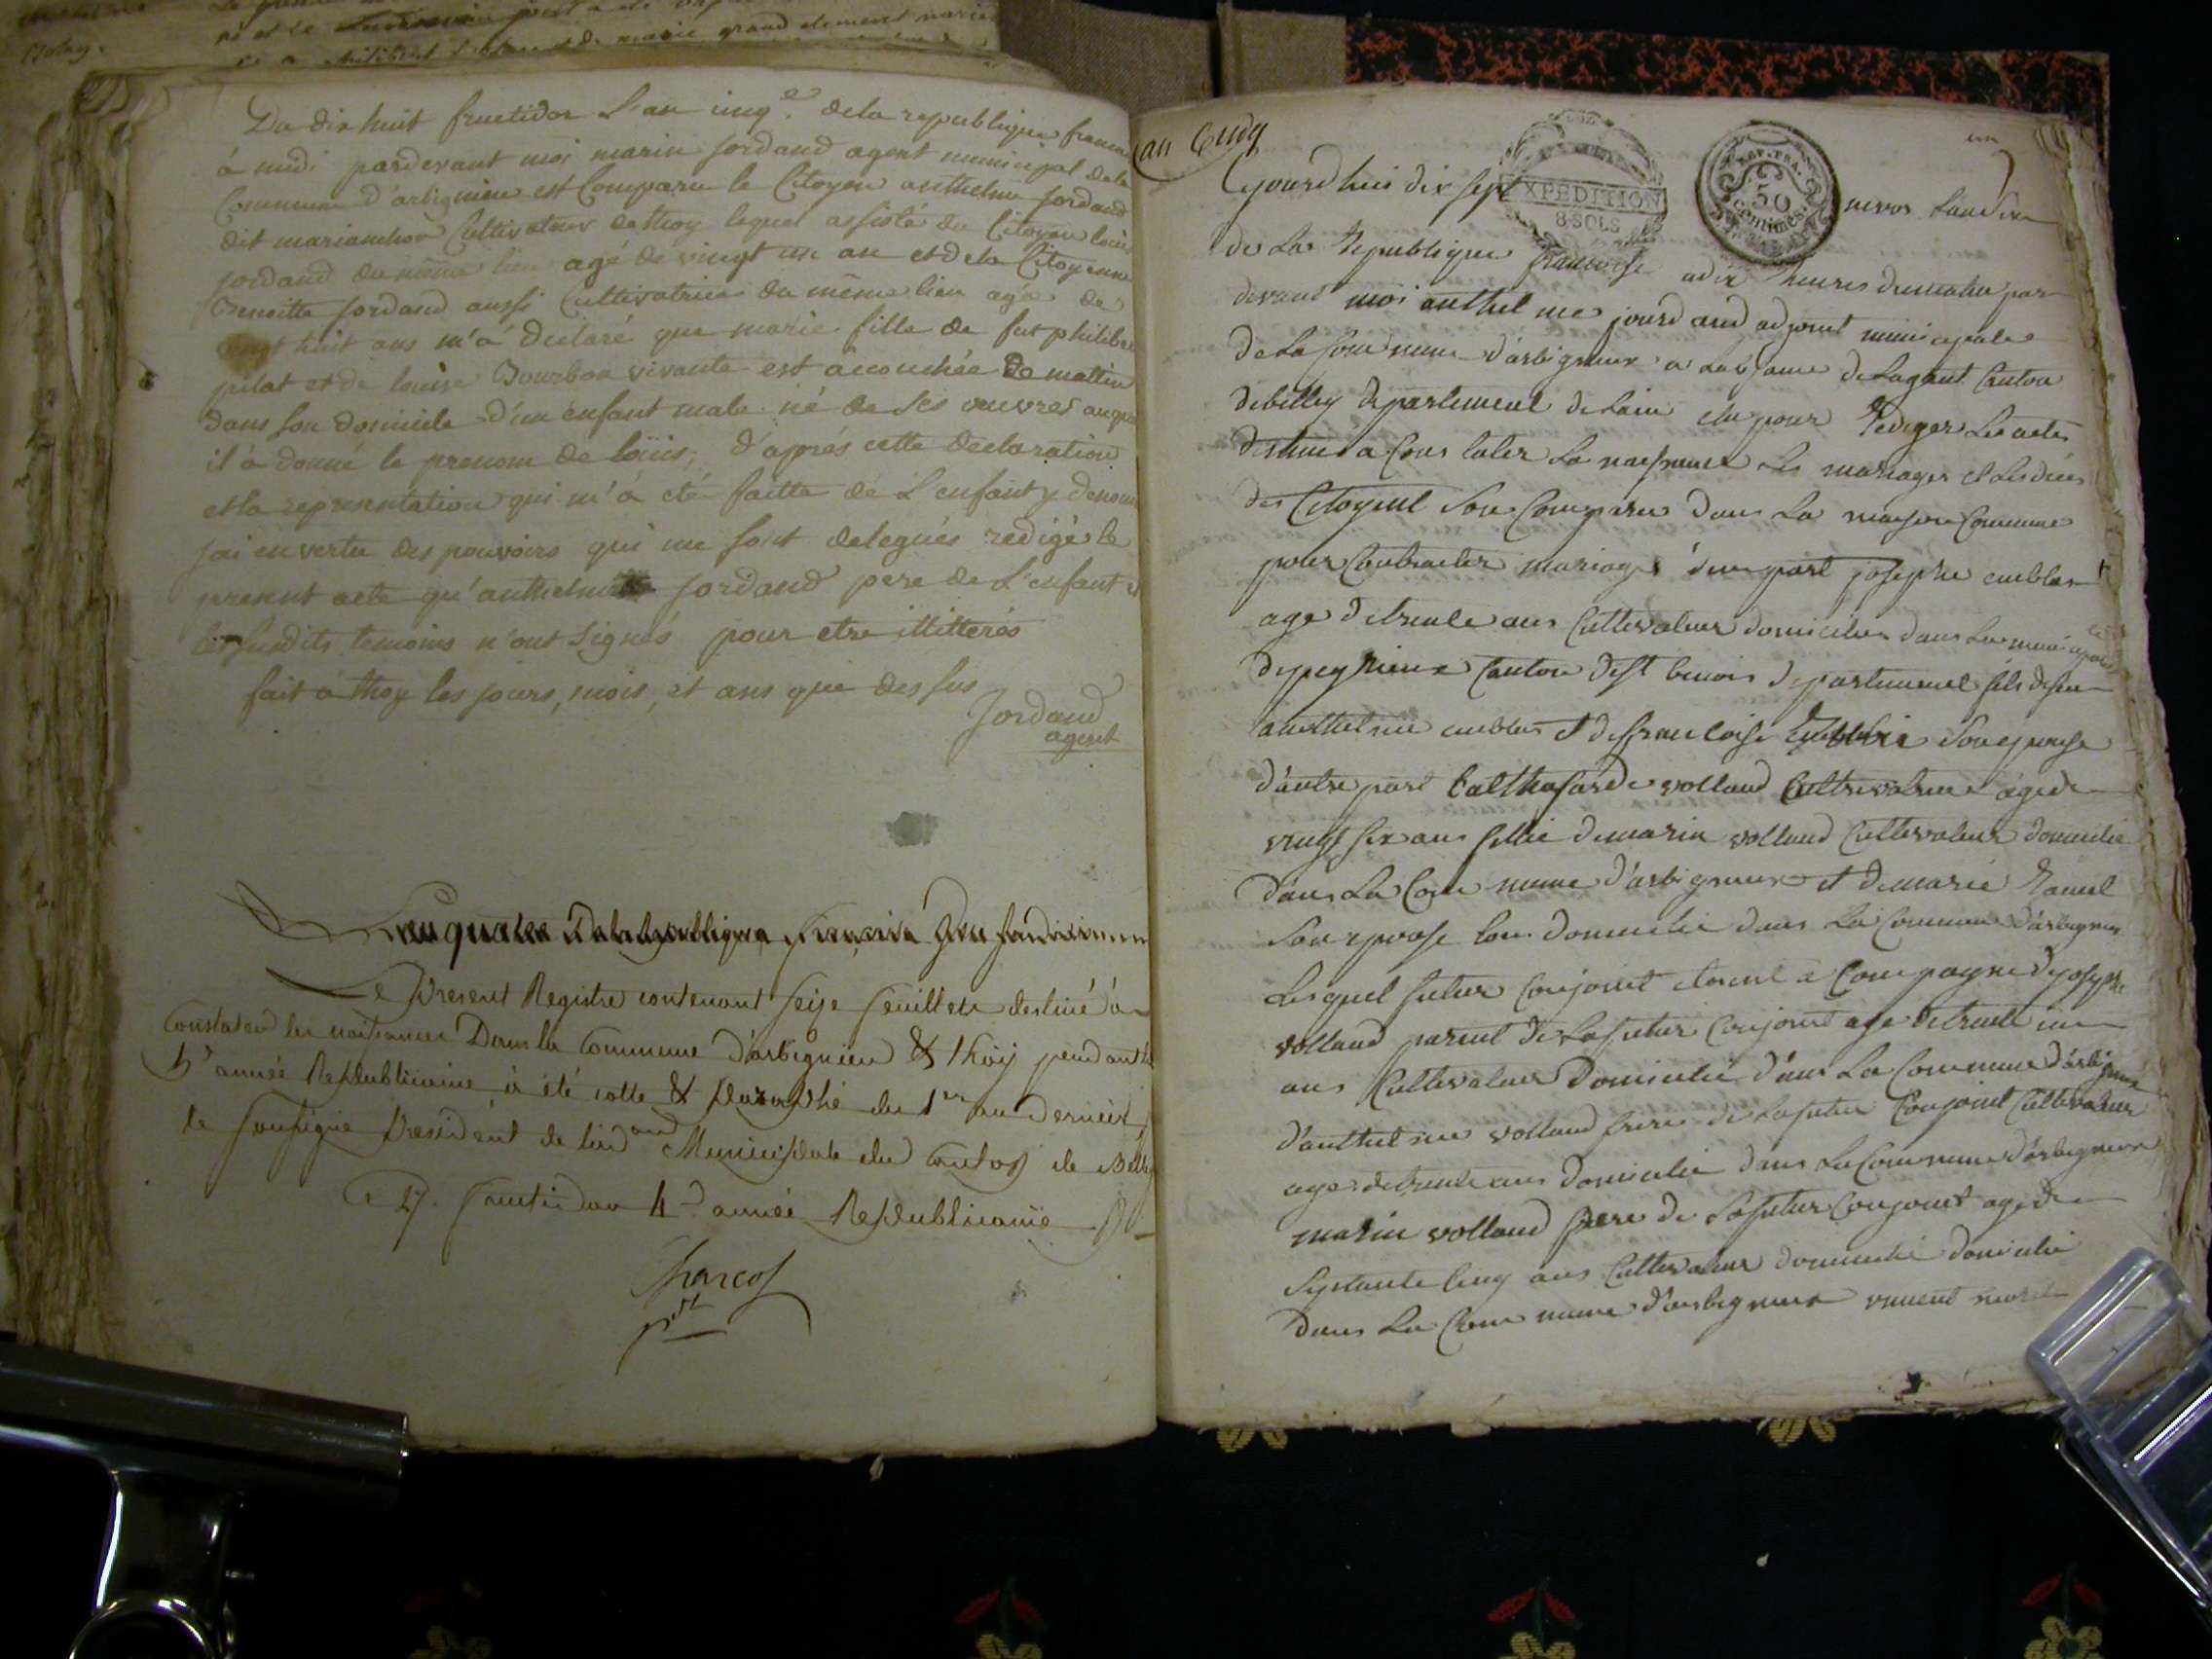 Du dix huit fructidor L'an cinq.e dela republique
à midi pardevant moi marin Jordand agent municipal dela
Commune d'arbignieu est Comparu le Citoyen anthelme Jordand
dit Cultivateur de thoy lequel assisté du Citoyen louis
Jordand du même lieu agé de vingt un an et dela Citoyenne
Benoitte Jordand aussi Cultivatrice du même lieu agée de
vingt huit ans m'a declaré que marie fille de fut philibe
pilat et de louise Bourbon vivante est acouchée ce mattin
dans son domicile d'un enfant male né de ses œuvres auquel
il a donné le prenom de loüis; d'aprés cette declaration
et la representation qui m'a eté faitte de L'enfant y denom
j'ai en vertu des pouvoirs qui me sont delegués redigé le
present acte qu'anthelme Jordand pere de L'enfant et
les susdits temoins n'ont signés pour etre illitterés
fait à thoy les jours, mois, et ans que dessus
Jordand
agent
L'an quatre de la Republique française
Le Present Registre contenant seize feuillets destiné à
Constater les naissances Dans la Commune d'arbignieu & thoÿ pendant la
5e année Republicaine à été cotté & Paraphé du 1er au dernier
le soussigné President de l'adon Municipale du Canton de Belley
27. fructidor 4e année Republicaine
pdt
an Cinq
un
EXPEDITION
8 SOLS
REP. FRA.
50
centimes.
Cejourdhui dix sept
de La Republique francoise a dix heures dumatin par
devant moi anthel me jourd and adjoint municipale
De La Com mune d'arbignieux a Labsance de Lagent Canton
debelley departement de Lain elu pour Rediger Les actes
destinee a Cons tater La naissance Les mariages et Les deces
des Citoyent Son Comparu Dans La maison Commune
pour Contracter mariage d'une part josephe
age de trente ans Cultivateur domicilie dans La municipalite
de peyrieux Canton de St benois departement fils de feu
anthelme et de francoise son epouse
d'autre part balthasarde volland Cultivatrice agé de
vingt six ans fillie de marin volland Cultivateur domicilie
dans La Com mune d'arbignieux et de marie
Son epouse domicilie dans La Commune d'arbignieux
Lesquel futur Conjoint etoient a Compagne de joseph
volland parent de La futur Conjoint age de trente un
ans Cultivateur Domicilie dans La Commune d'arbignieux
d'anthelme volland frere de La futur Conjoint Cultivateur
age de trente ans domicilie dans La Commune d'arbignieux
marin volland pere de La futur Conjoint age de
Septante Cinq ans Cultivateur domicilie domicilie
dans La Com mune d'arbignieux